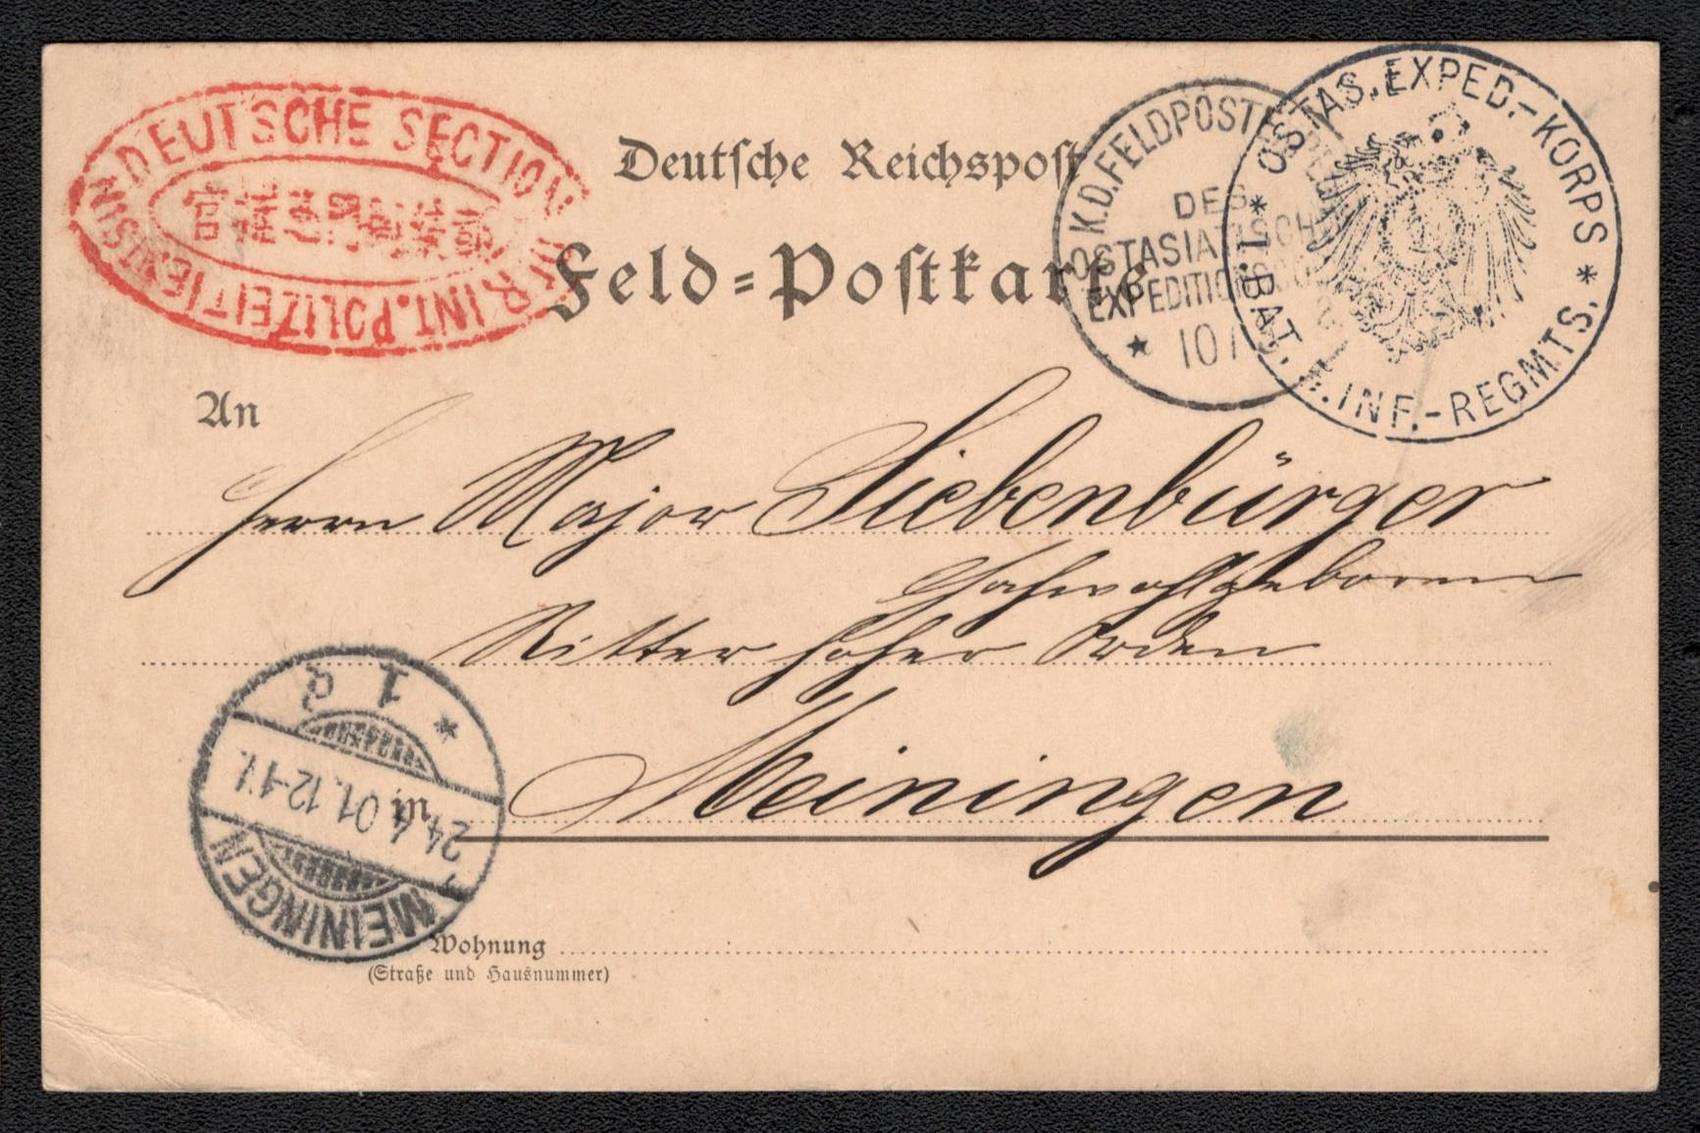 DEUTSCHE SECTION DER INT. POLIZEI TIENTSIN
Deutsche Reichspost
Feld=Postkarte
K.D. FELDPOST
DES
OSTASIATISCH
EXPEDITIONS
* 10/
* OSTAS. EXPED.-KORPS *
I. BAT. INF.-REGMTS.
An
Herrn Major Siebenbürger
Hochwohlgeboren
Ritter hoher Orden
Meiningen
in
MEININGEN
24.4.01.12-1V.
* 1 d
Wohnung
(Straße und Hausnummer)